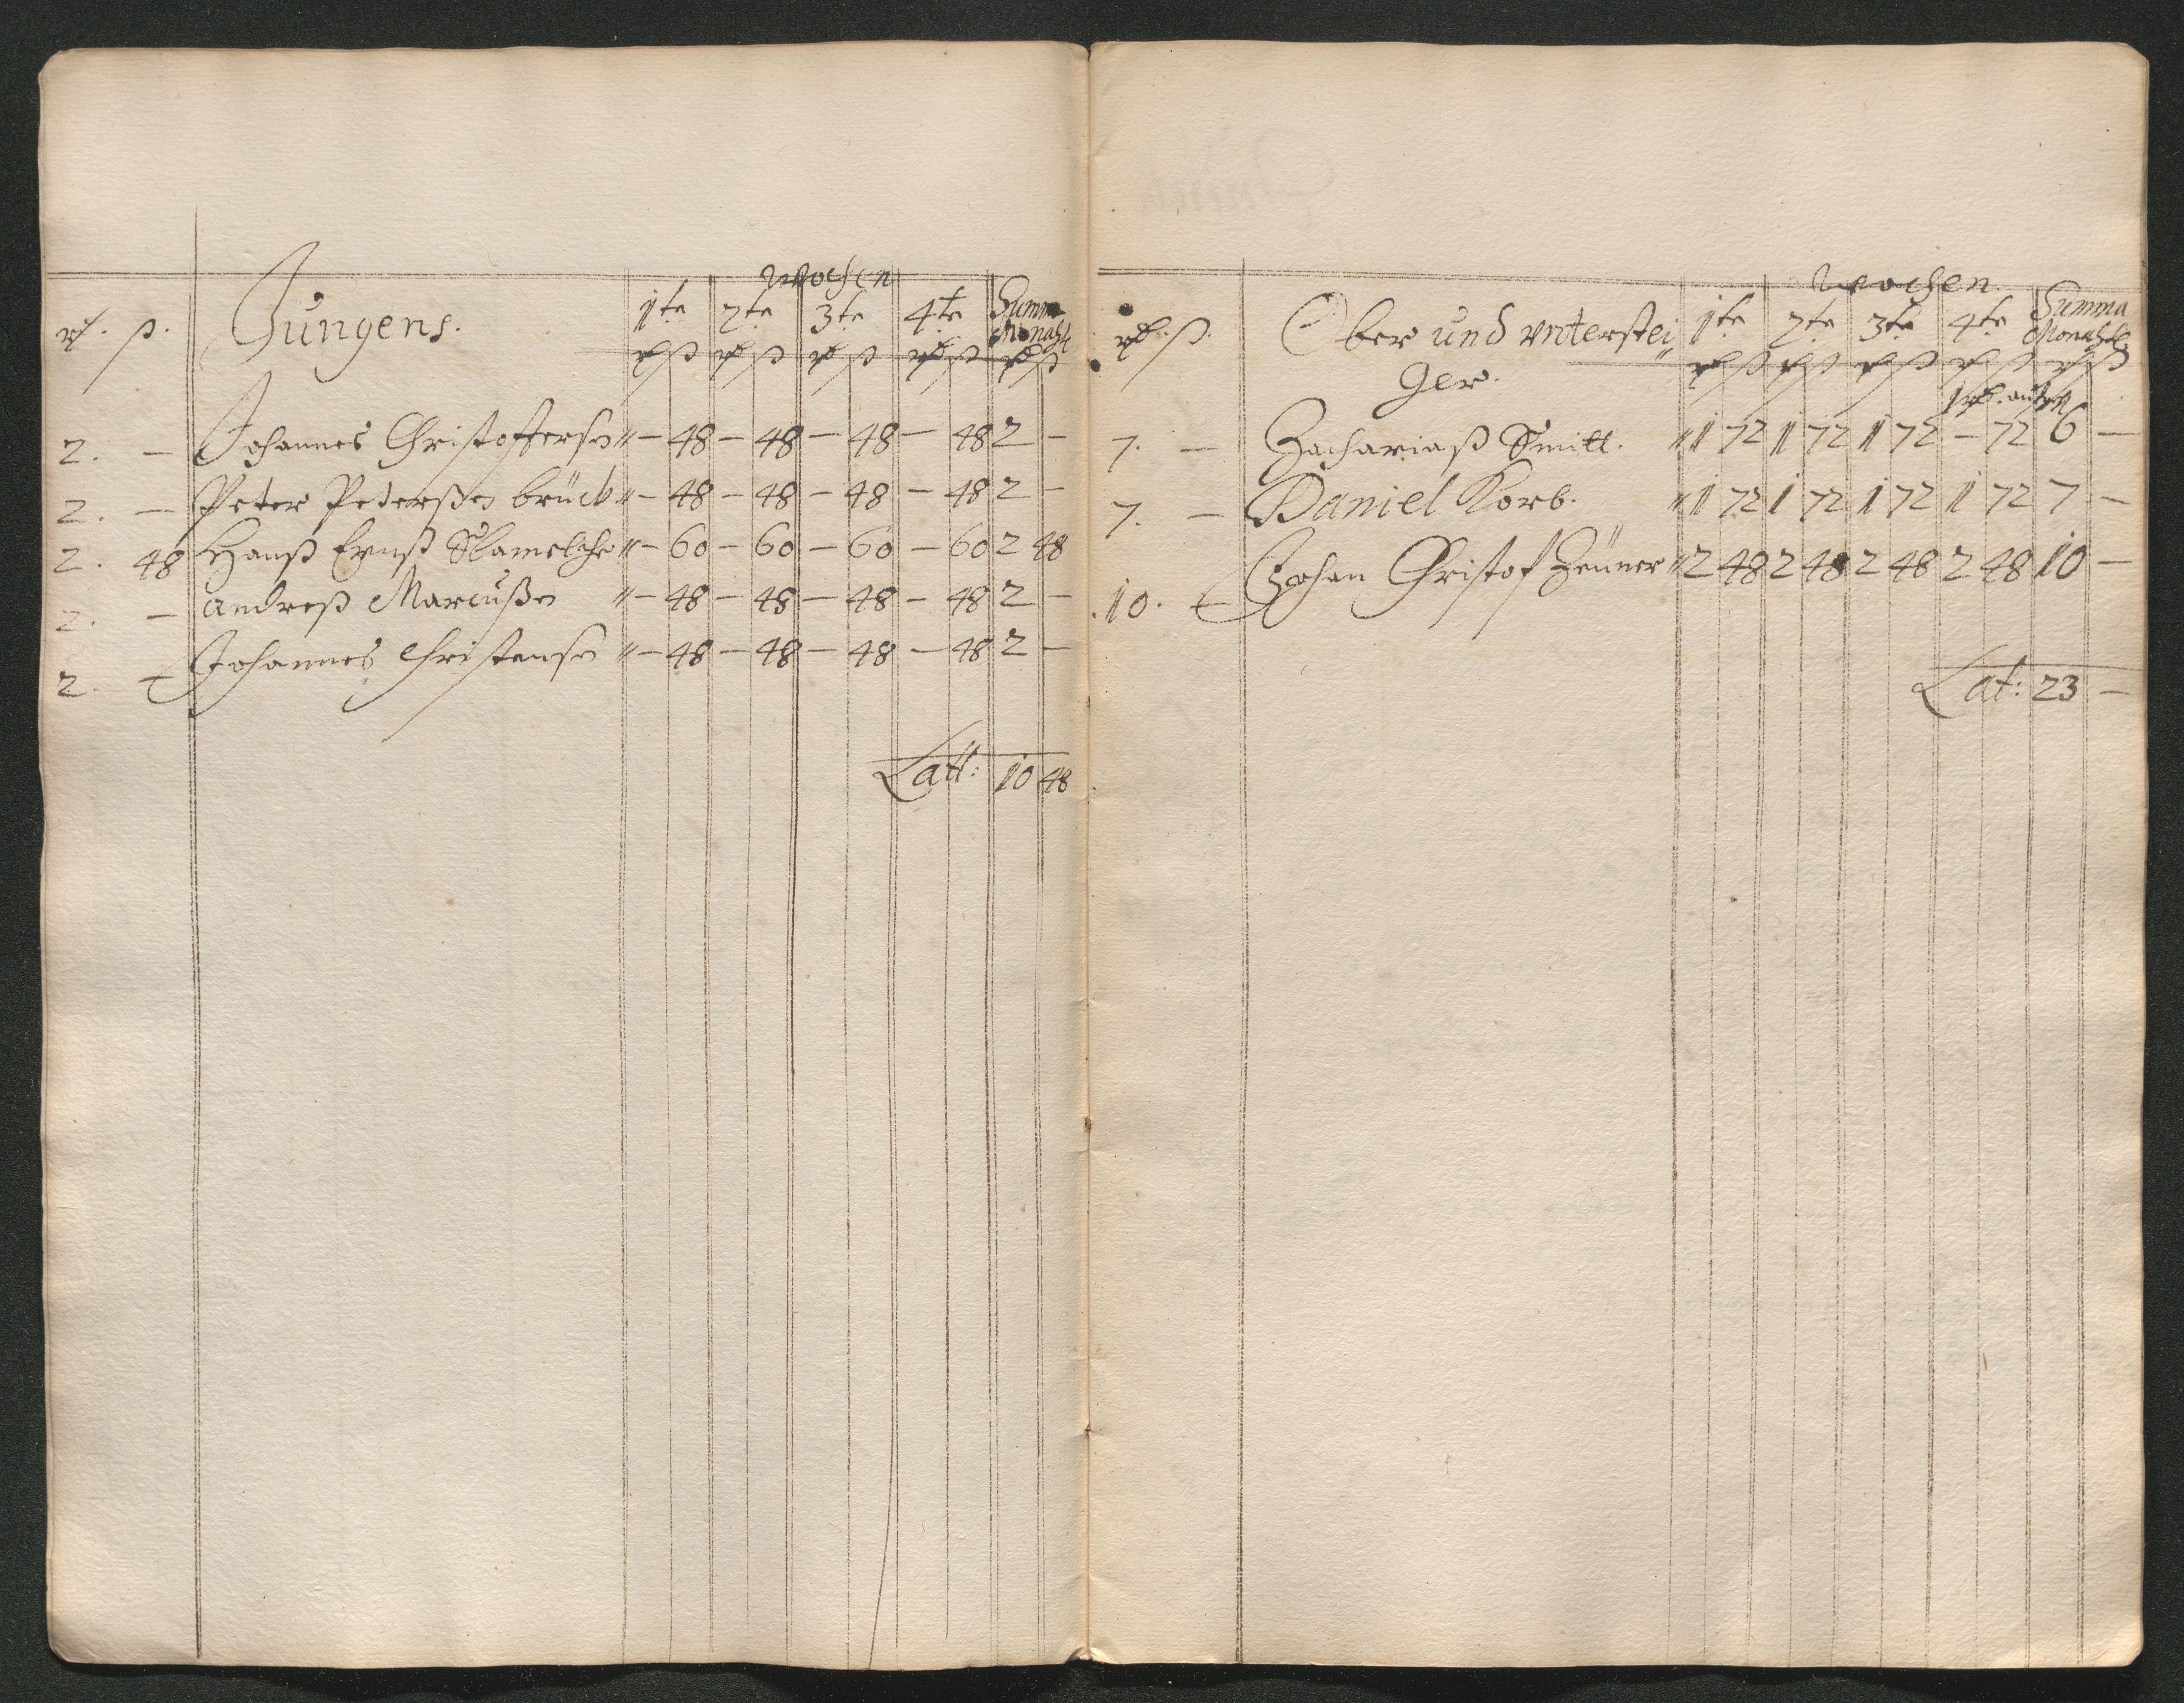 Wochen
rd. ß. Jungens. 1te 2te 3te 4te Summa Monahtl
rd ß rd ß rd ß rd ß rd ß
2. — Johannes Christoffersen — 48 — 48 — 48 — 48 2 —
2. — Peter Peterßen brück — 48 — 48 — 48 — 48 2 —
2. 48 Hanß Ernst — 60 — 60 — 60 — 60 2 48
2. — Andreß Marcußen — 48 — 48 — 48 — 48 2 —
2. — Johannes Christensen — 48 — 48 — 48 — 48 2 —
Latt: 10 48
Wochen.
rd. ß. Ober und unterstei 1te 2te 3te 4te Summa Monahtl.
ger. rd ß rd ß rd ß rd ß rd ß
1 rd.
7. — Zachariaß Smitt. 1 72 1 72 1 72 — 72 6 —
7. — Daniel Korb. 1 72 1 72 1 72 1 72 7 —
10. — Johan Christof Zeüner 2 48 2 48 2 48 2 48 10 —
Lat: 23 —